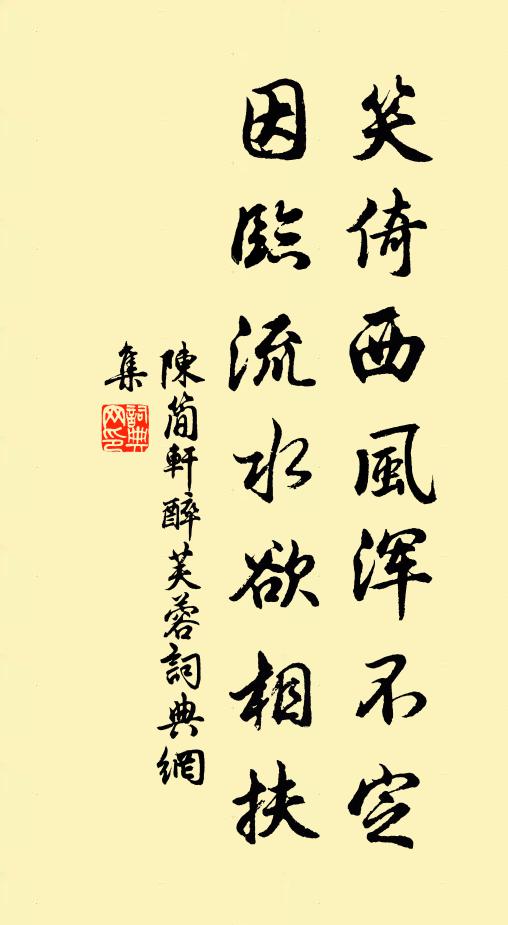 笑倚西風浑不定
因臨流水欲相扶
陳简軒醉芙蓉詞典網
集
詞典网印